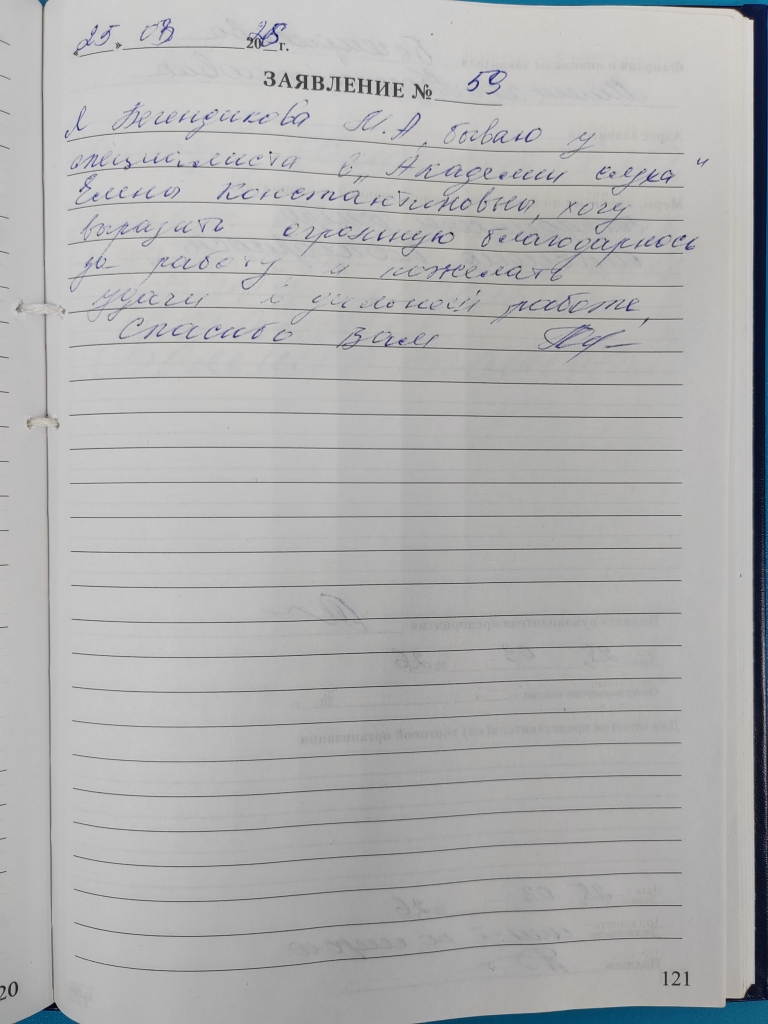 «25» 03 2026 г.
ЗАЯВЛЕНИЕ № 59
Я Бегендикова М.А, бываю у
специалиста в „Академии слуха"
Елены Константиновны, хочу
выразить огромную благодарнось
за работу и пожелать
удачи в дальнеей работе,
Спасибо Вам
121
20